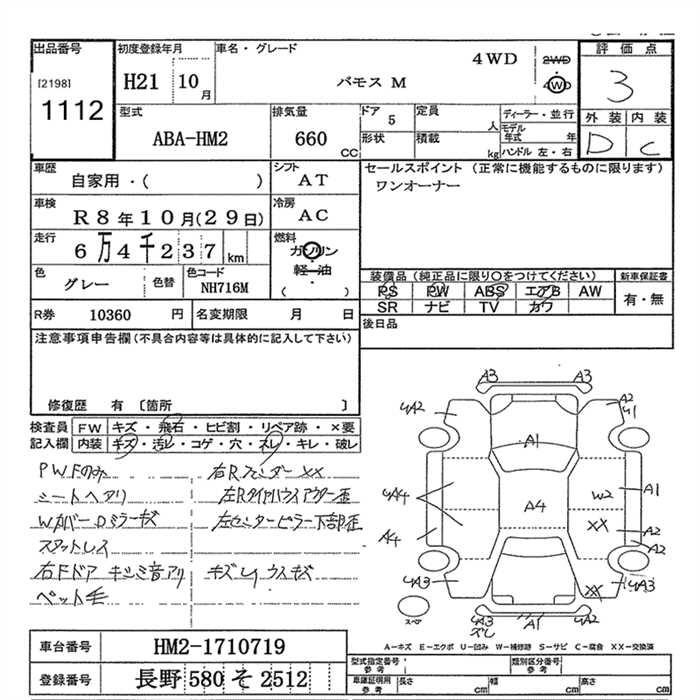 出品番号
[2198]
1112
初度登録年月
H21 10月
車名・グレード
4WD
バモス M
2WD
4WD
評価点
3
外装 内装
D C
型式
ABA-HM2
排気量
660 CC
ドア 5
形状
定員 人
積載 kg
ディーラー・並行
モデル年式 年
ハンドル 左・右
車歴
自家用・( )
シフト
AT
セールスポイント (正常に機能するものに限ります)
ワンオーナー
車検
R8年10月(29日)
冷房
AC
走行
6万4千237km
燃料
ガソリン
軽・油
( )
色
グレー
色替
色コード
NH716M
装備品 (純正品に限り○をつけてください)
PS PW ABS エアB AW
SR ナビ TV カワ
新車保証書
有・無
R券 10360 円
名変期限 月 日
後日品
注意事項申告欄 (不具合内容等は具体的に記入して下さい)
修復歴 有 〔箇所 〕
検査員記入欄
FW キズ・飛石・ヒビ割・リペア跡・×要
内装 キズ・汚レ・コゲ・穴・スレ・キレ・破レ
PWFのみ
シートヘタリ
Wカバー・Dミラーキズ
スタットレス
右Fドア キシミ音アリ
ペット毛
右Rフェンダー XX
左Rタイヤハウスアウター歪
左センターピラー下部歪
キズU ウスキズ
A3 A3
A2
A2
A1
A4
A4
W2
A1
XX
A2
A2
A3
XX
A3
A3
A1
A2
スペア
A-キズ E-エクボ U-凹み W-補修跡 S-サビ C-腐食 XX-交換済
車台番号 HM2-1710719
登録番号 長野 580 そ 2512
型式指定番号 参考
類別区分番号 参考
車庫証明用 参考
長さ cm
幅 cm
高さ cm